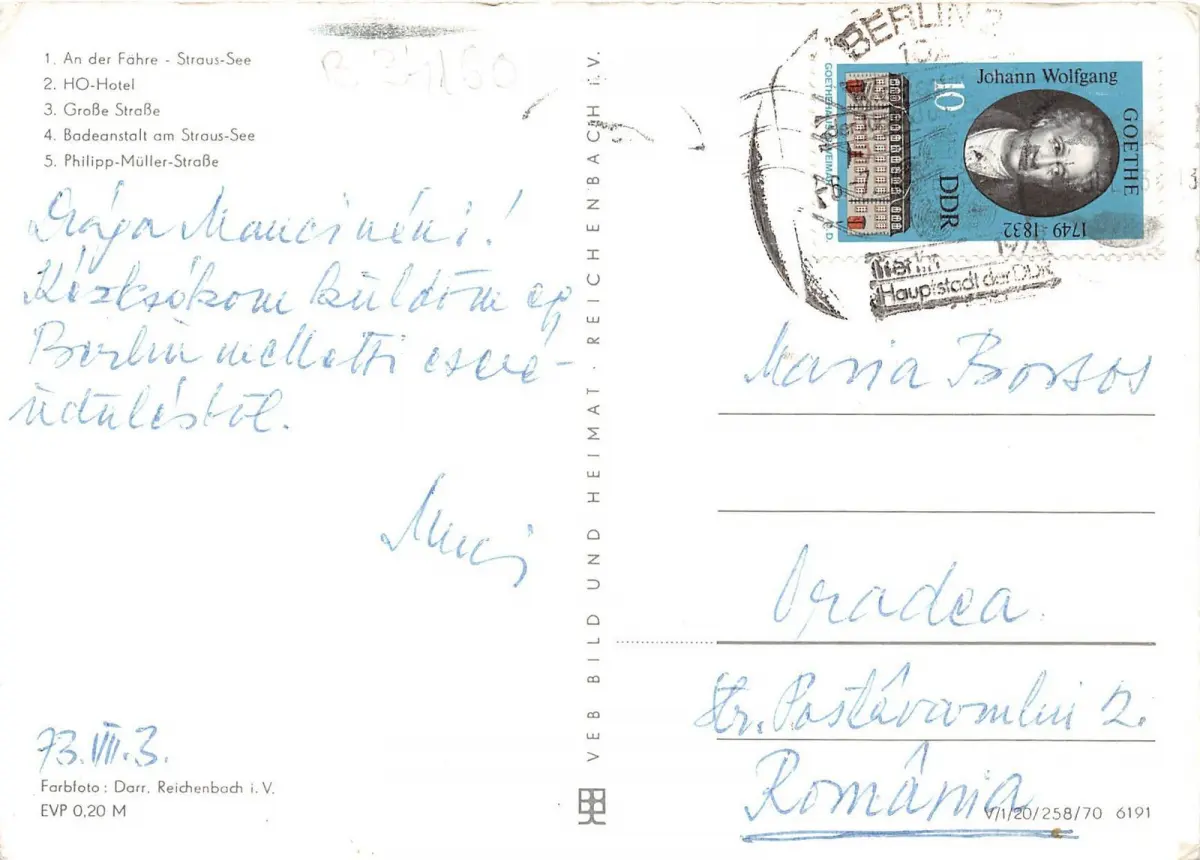 1. An der Fähre - Straus-See
2. HO-Hotel
3. Große Straße
4. Badeanstalt am Straus-See
5. Philipp-Müller-Straße
Drága Mancinéni!
Kézcsókom küldöm egy
Berlin melletti csere-
üdülésből.
73.VII.3.
Farbfoto: Darr, Reichenbach i. V.
EVP 0,20 M
VEB BILD UND HEIMAT · REICHENBACH i. V.
BERLIN 2
Johann Wolfgang
GOETHE
1749-1832
10
DDR
GOETHEHAUS IN WEIMAR
Berlin
Hauptstadt der DDR
Maria Borsos
Oradea
Str. Postăvarului 2.
România
V/1/20/258/70 6191